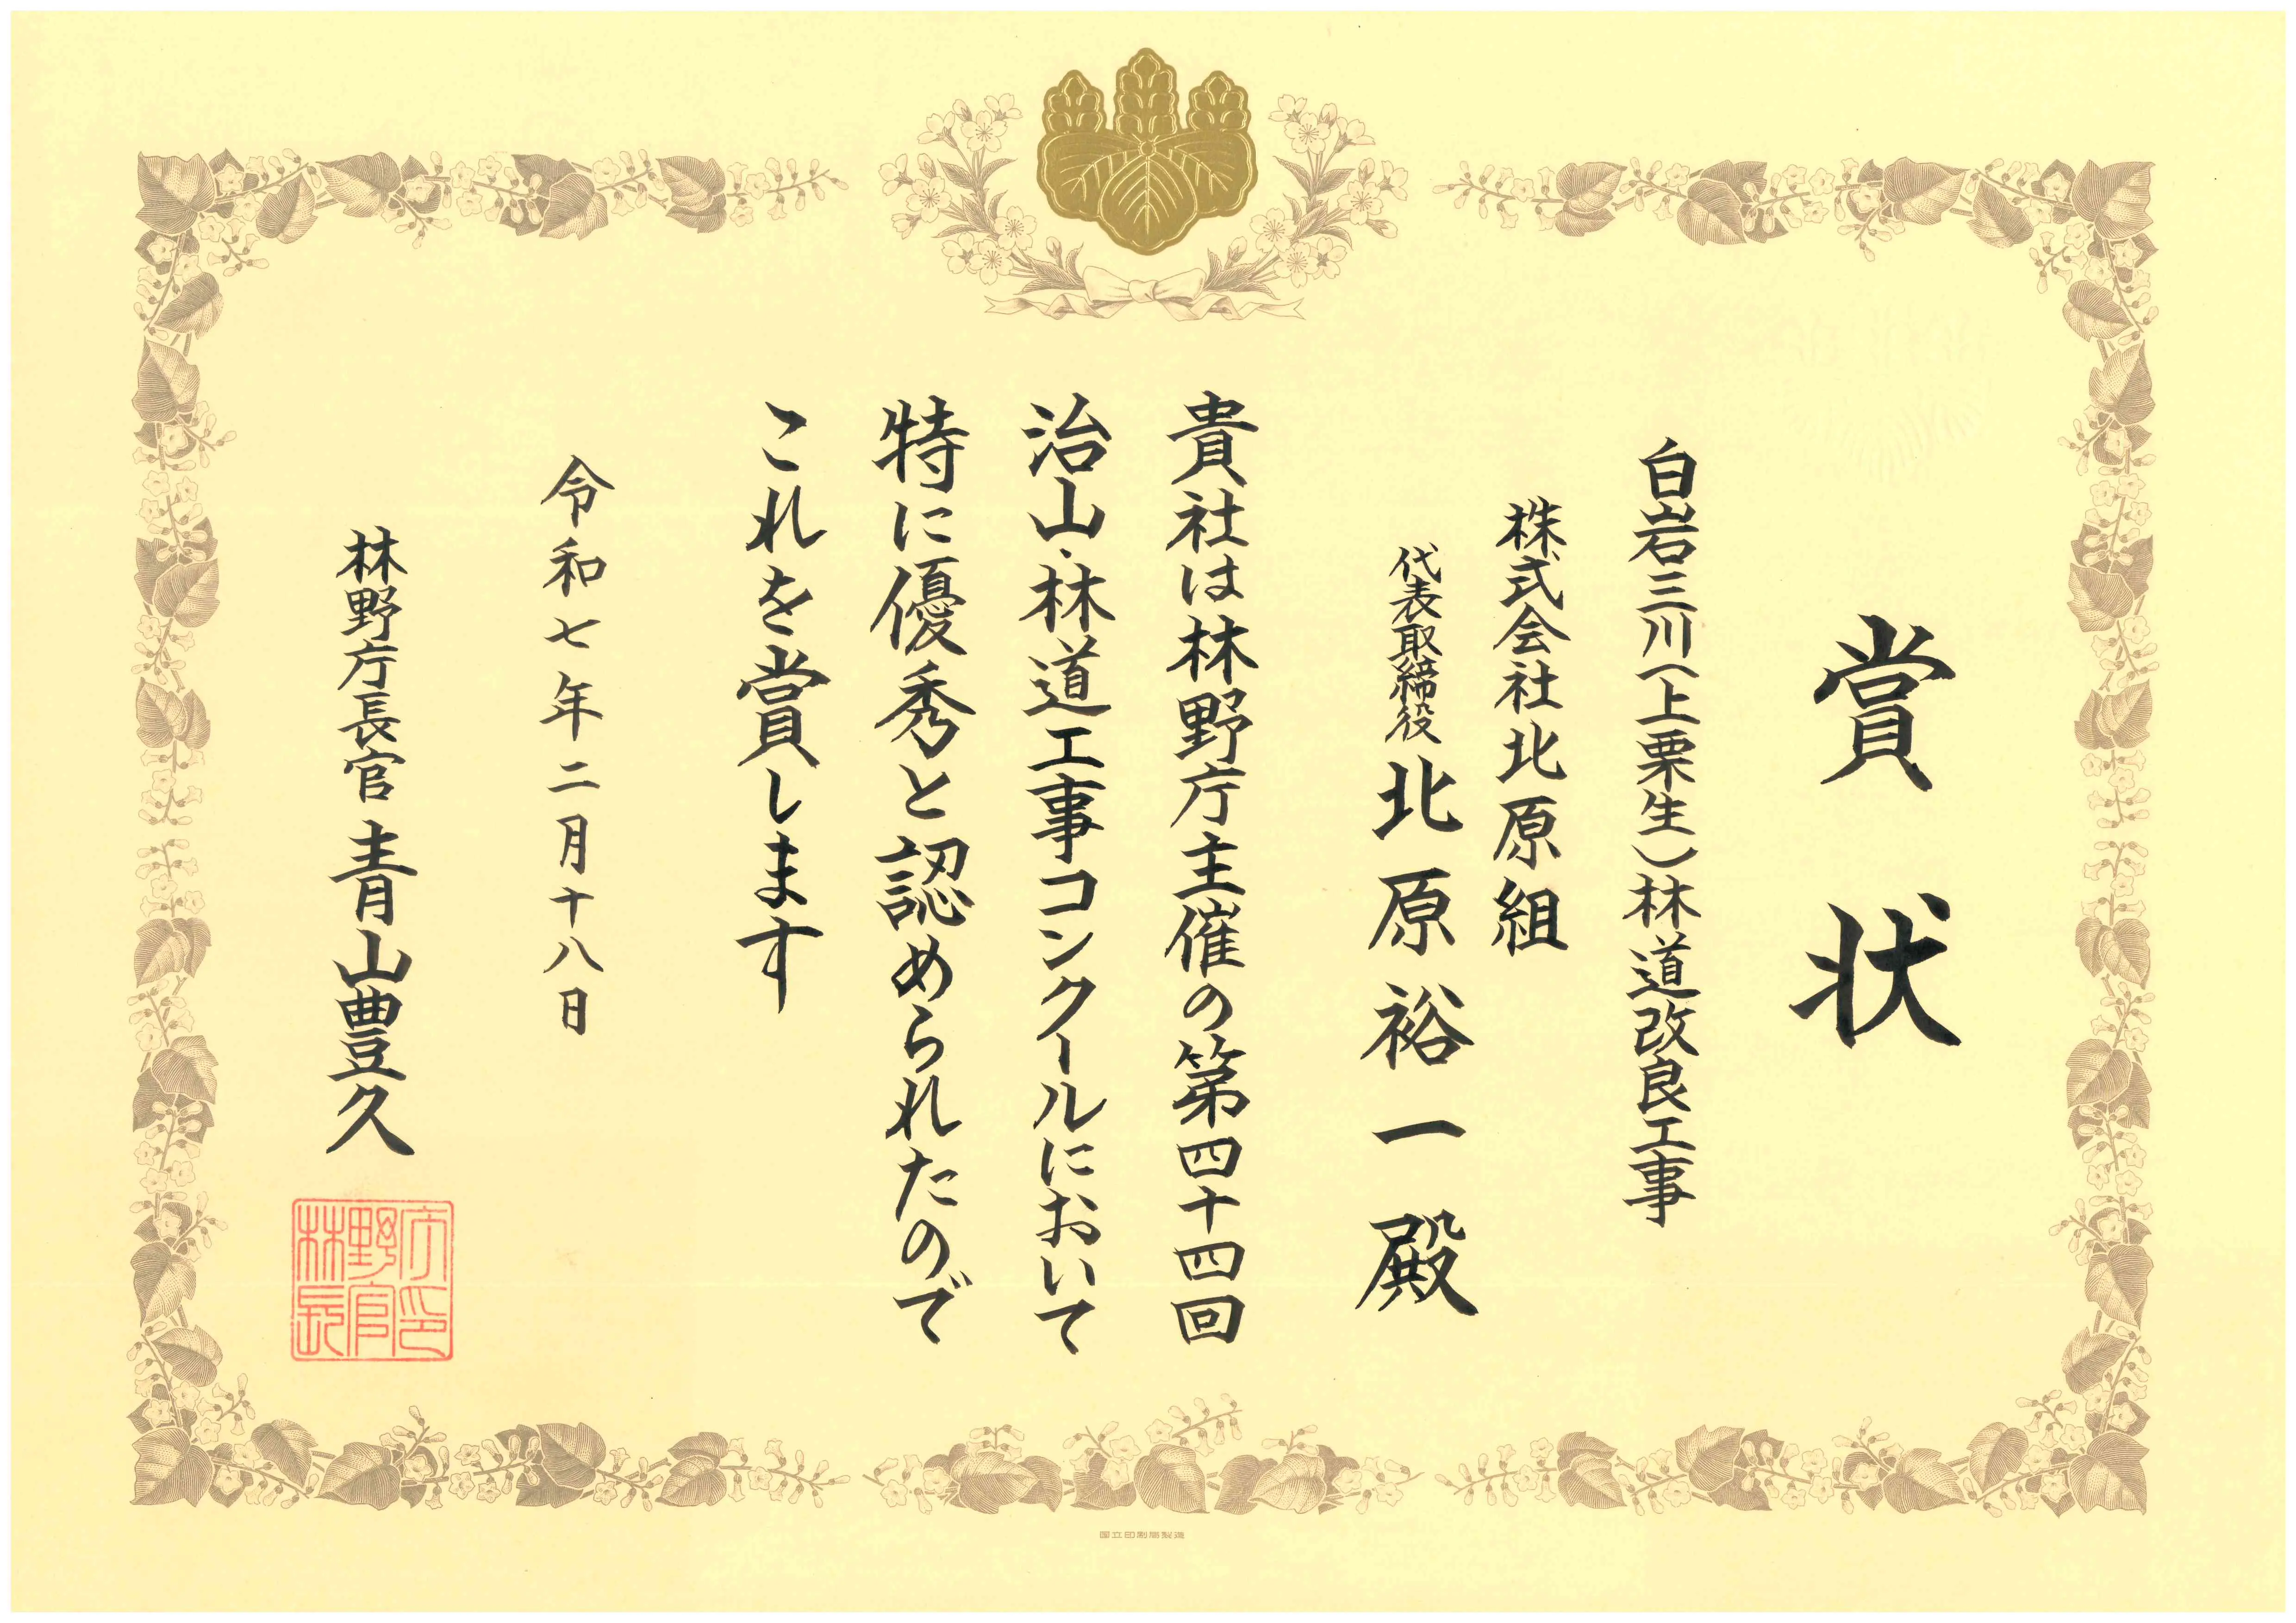 賞状
白岩三川(上栗生)林道改良工事
株式会社北原組
代表取締役 北原裕一殿
貴社は林野庁主催の第四十四回
治山・林道工事コンクールにおいて
特に優秀と認められたので
これを賞します
令和七年二月十八日
林野庁長官 青山豊久
林野庁長官印
国立印刷局製造